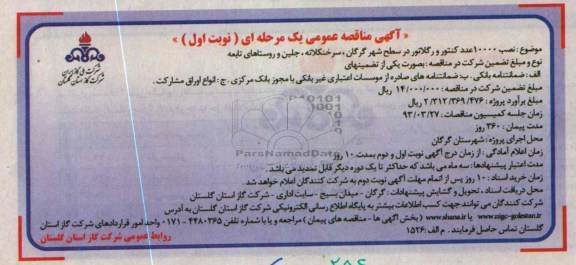 « آگهی مناقصه عمومی یک مرحله ای ( نوبت اول ) »
شرکت ملی گاز ایران
شرکت گاز استان گلستان
موضوع : نصب ۱۰۰۰۰عدد کنتور و رگلاتور در سطح شهر گرگان ، سرخنکلاته ، جلین و روستاهای تابعه
نوع و مبلغ تضمین شرکت در مناقصه :بصورت یکی از تضمینهای
الف : ضمانتنامه بانکی . ب: ضمانتنامه های صادره از موسسات اعتباری غیر بانکی با مجوز بانک مرکزی . ج : انواع اوراق مشارکت.
مبلغ تضمین شرکت در مناقصه : ۱۴/۰۰۰/۰۰۰ ریال
مبلغ برآورد پروژه : ۲/۳۱۲/۳۶۹/۴۷۶ ریال
زمان جلسه کمیسیون مناقصات : ۹۳/۰۳/۲۷
مدت پیمان : ۳۶۰ روز
محل اجرای پروژه : شهرستان گرگان
زمان اعلام آمادگی : از زمان درج آگهی نوبت اول و دوم بمدت ۱۰ روز
مدت اعتبار پیشنهادها : سه ماه می باشد که حداکثر تا یک دوره دیگر قابل تمدید می باشد .
زمان خرید اسناد : ۱۰ روز پس از اتمام مهلت آگهی نوبت دوم به شرکت کنندگان اعلام خواهد شد .
محل دریافت اسناد ، تحویل و گشایش پیشنهادات : گرگان - میدان بسیج - سایت اداری - شرکت گاز استان گلستان
شرکت کنندگان می توانند جهت کسب اطلاعات بیشتر به پایگاه اطلاع رسانی الکترونیکی شرکت گاز استان گلستان به آدرس
www.nigc-golestan.ir یا www.shana.ir (بخش آگهی ها - مناقصه های پیمان ) مراجعه و یا با شماره تلفن ۴۴۸۰۲۶۵ - ۰۱۷۱ واحد امور قراردادهای شرکت گاز استان
گلستان تماس حاصل فرمایند . م الف :۱۵۲۶
روابط عمومی شرکت گاز استان گلستان
ParsNamadData